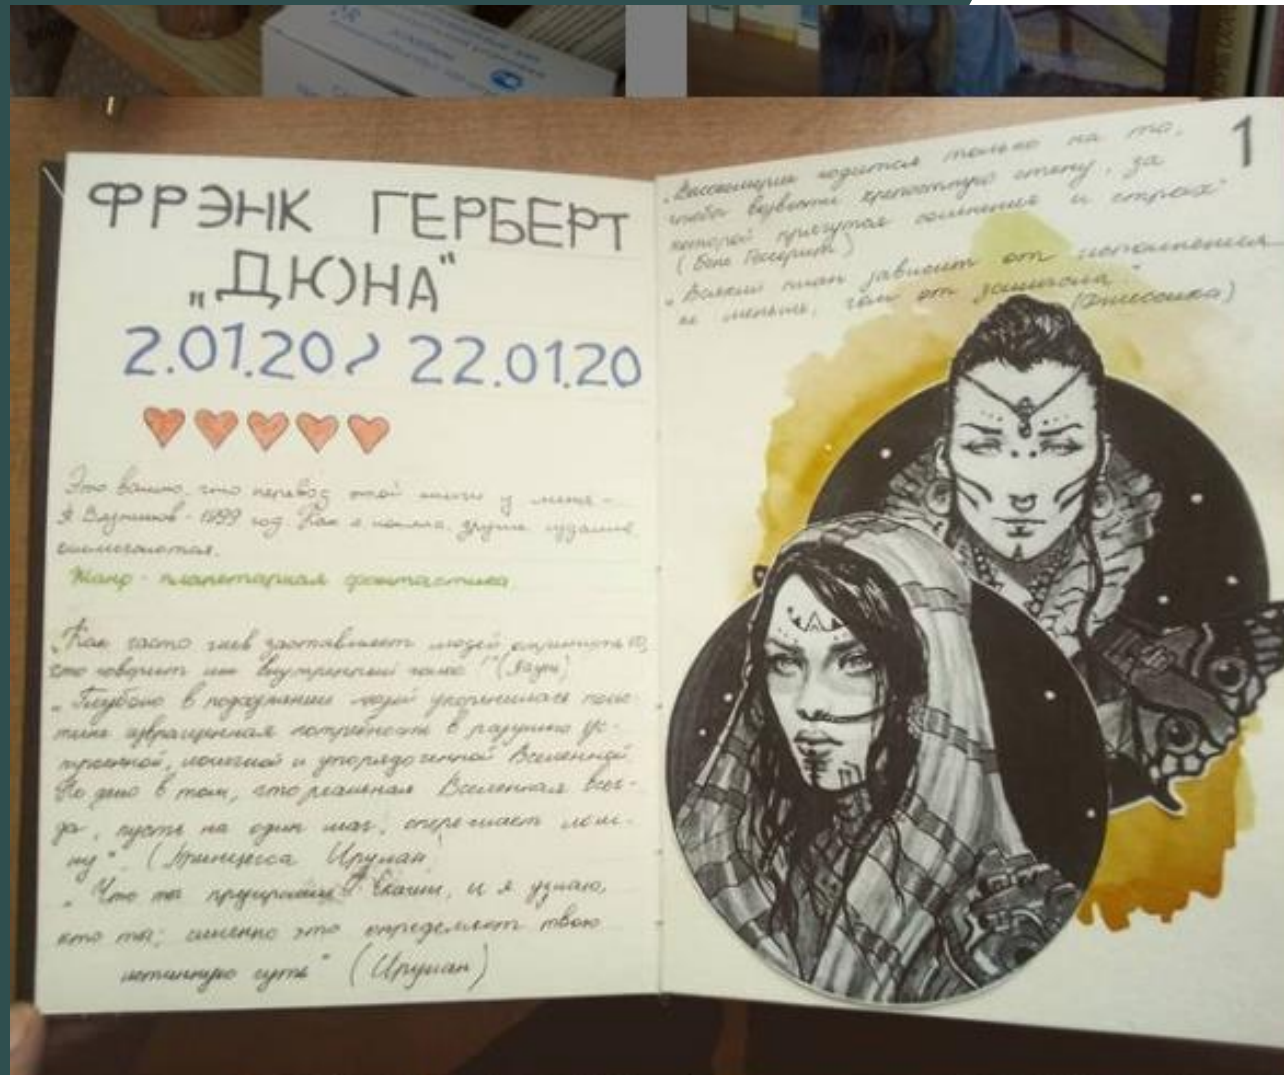 ФРЭНК ГЕРБЕРТ
„ДЮНА“
2.01.20 22.01.20
Это важно, что перевод этой книги у меня -
П. Вязников - 1999 год. Как я поняла, другие
Жанр - планетарная фантастика.
„Как часто гнев заставляет людей отринуть то,
что говорит им внутренний голос!“ (Пауль)
„Глубоко в подсознании людей укоренилась поис-
тине извращенная потребность в разумно ус-
троенной, логичной и упорядоченной Вселенной.
Но дело в том, что реальная Вселенная всег-
да, пусть на один шаг, опережает логи-
ку“ (Принцесса Ирулан
„Что ты презираешь? Скажи, и я узнаю,
кто ты; именно это определяет твою
истинную суть“ (Ирулан)
1
годится только на то,
чтобы возвести крепостную стену, за
которой прячутся сомнения и страх“
(Бене Гессерит)
„Всякий план зависит от исполнения
не меньше, чем от замысла“
(Джессика)